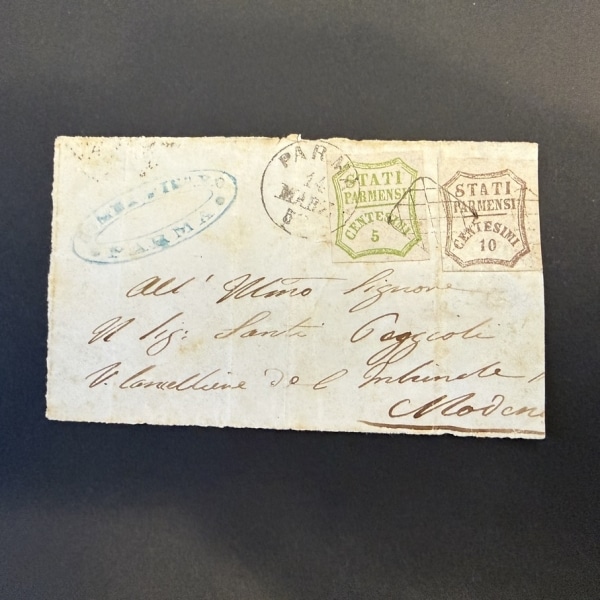 PARMA
PARMA
14
MARZ
5
STATI
PARMENSI
CENTESIMI
5
STATI
PARMENSI
CENTESIMI
10
All' Illmo Signore
Il Sig: Santi
V. Cancelliere del
Modena